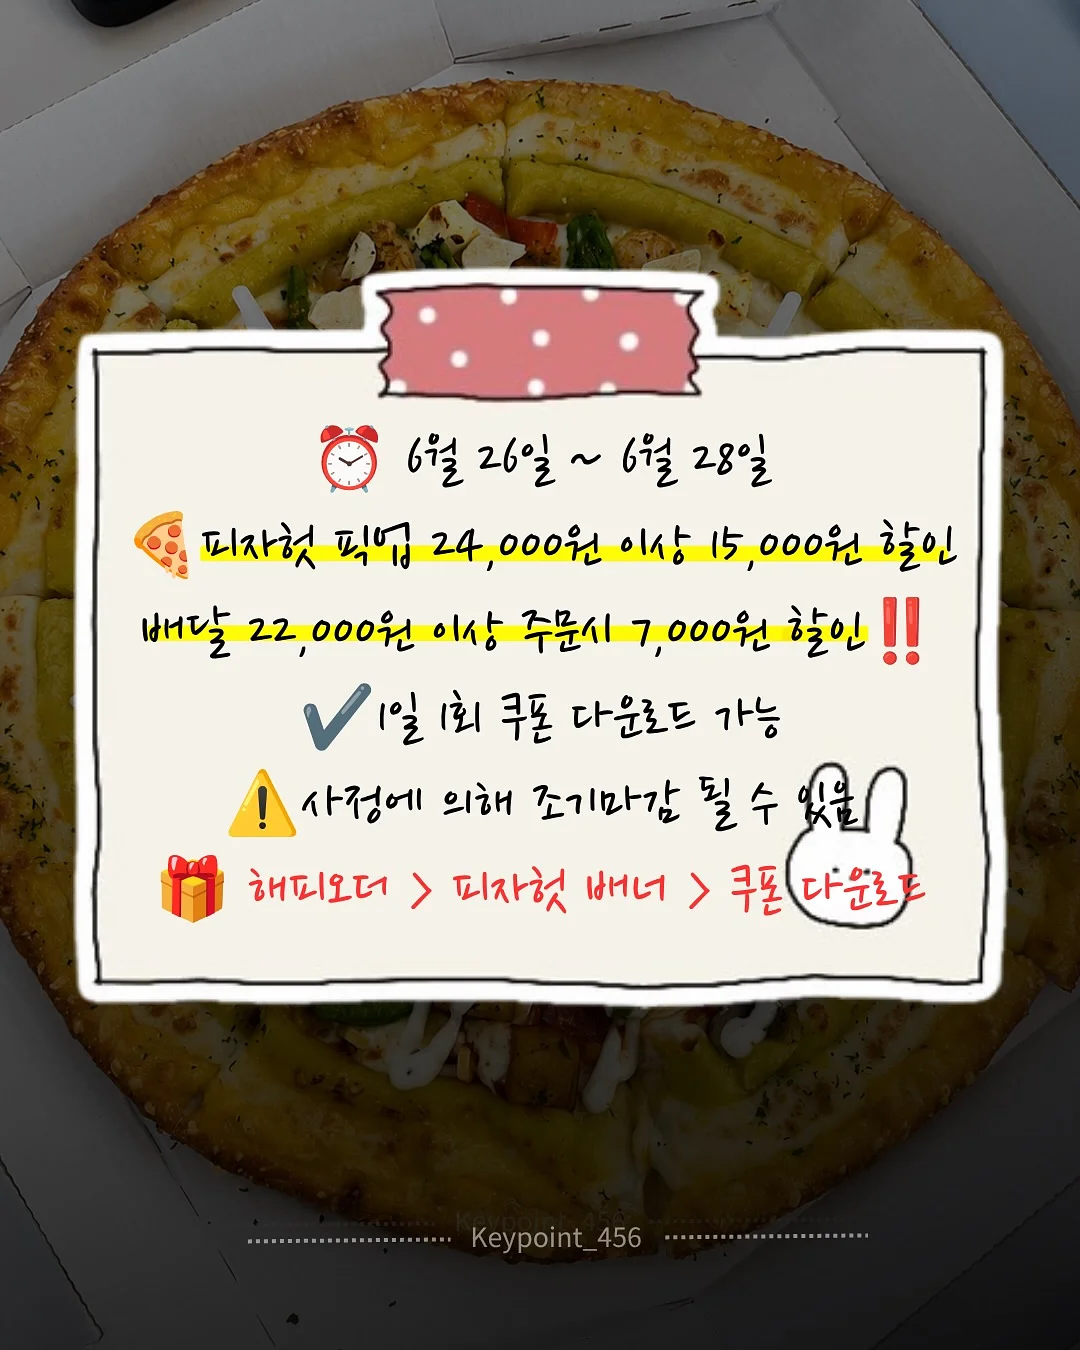 ⏰ 6월 26일 ~ 6월 28일
🍕피자헛 픽업 24,000원 이상 15,000원 할인
배달 22,000원 이상 주문시 7,000원 할인‼️
✔️1일 1회 쿠폰 다운로드 가능
⚠️사정에 의해 조기마감 될 수 있음
🎁 해피오더 > 피자헛 배너 > 쿠폰 다운로드
Keypoint_456
Keypoint_456